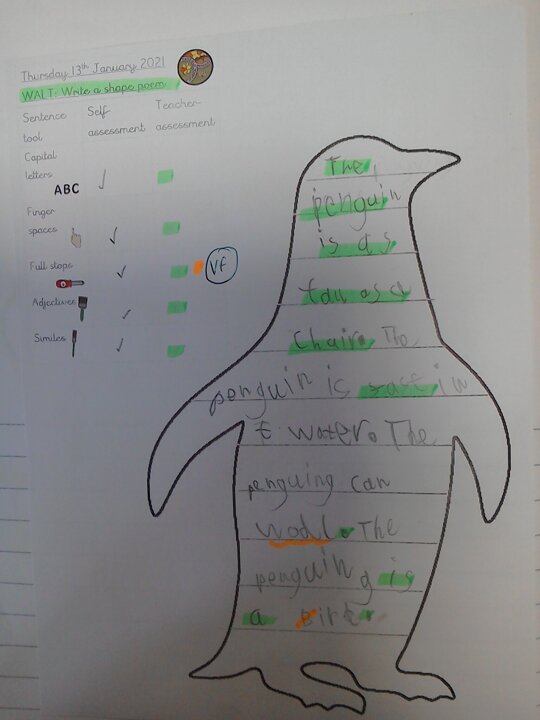 Thursday 13th January 2021
WALT: Write a shape poem
Sentence tool
Self assessment
Teacher assessment
Capital letters
ABC
Finger spaces
Full stops
Vf
Adjectives
Similes
The
penguin
is as
tall as a
chair. The
penguin is fast in
t water. The
penguing can
wodl. The
penguing is
a